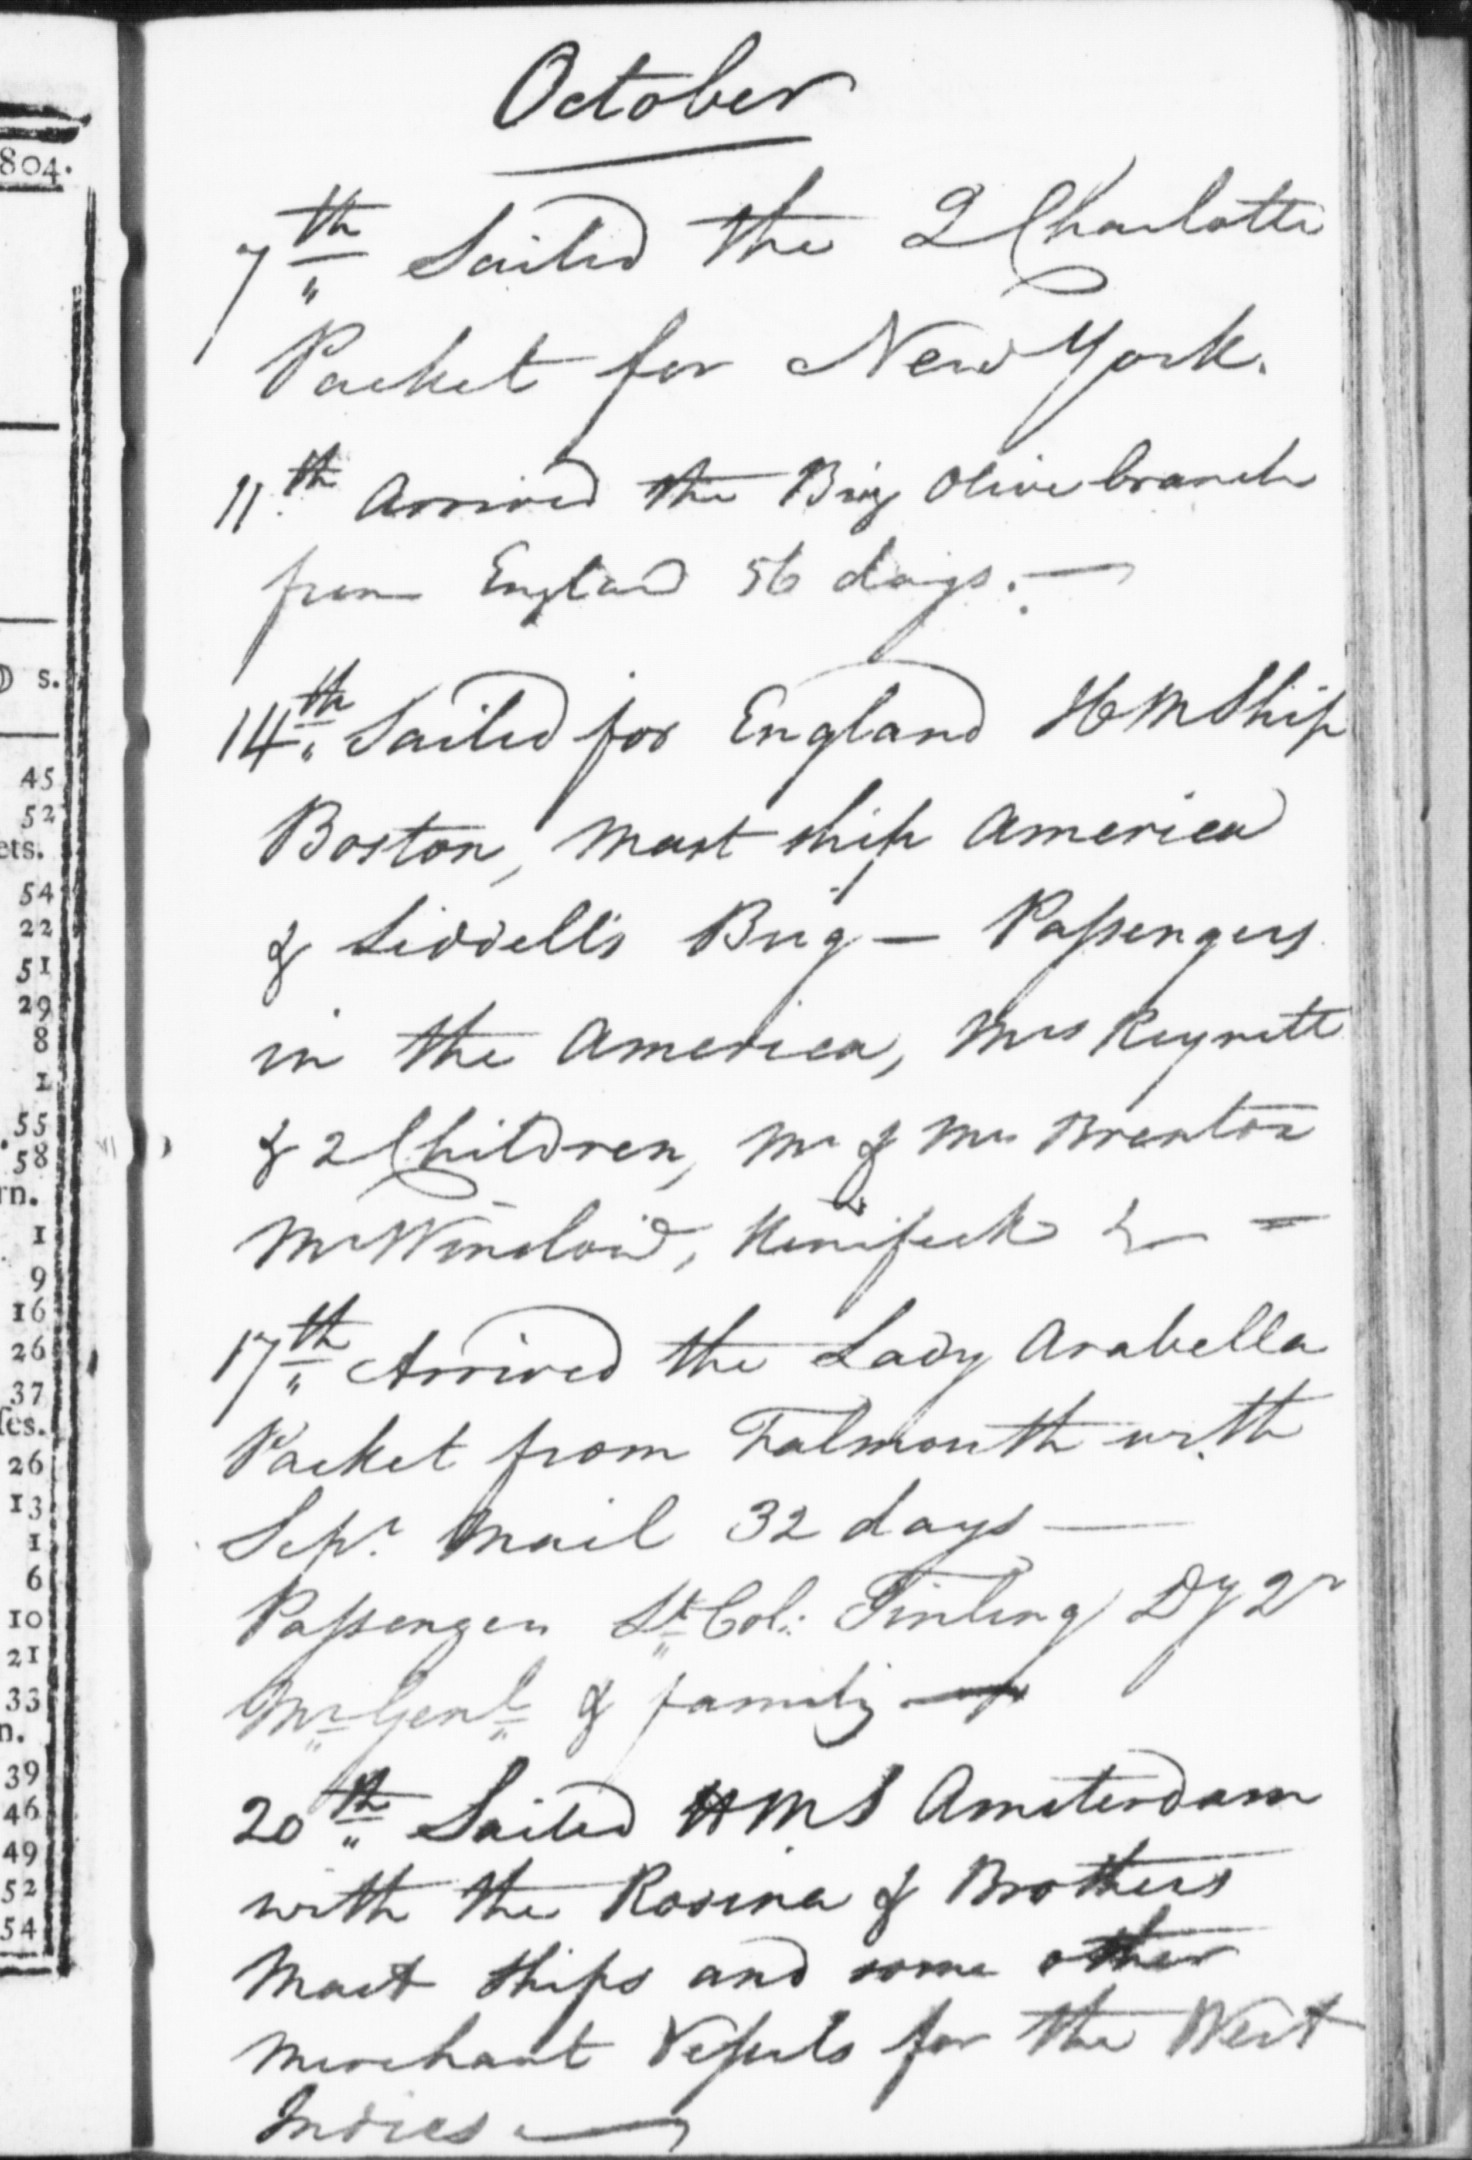 804.
s.
45
52
ets.
54
22
51
29
8
1
55
58
rn.
1
9
16
26
37
ſes.
26
13
1
6
10
21
33
n.
39
46
49
52
54
October
7th Sailed the Q Charlotte
Packet for New York.
11th Arrived the Brig Olive branch
from England 56 days.—
14th Sailed for England HM Ship
Boston, Mast ship America
& Liddell's Brig — Paſsengers
in the America, Mrs Reynett
& 2 Children, Mr & Mrs Brenton
Mr Winslow,
17th Arrived the Lady Arabella
Packet from Falmouth with
Sepr. Mail 32 days —
Paſsengers Lt Col: Tinling Dy 2r
Mr Genl & family —
20th Sailed HMS Amsterdam
with the Rosina & Brothers
Mast ships and some other
Merchant Veſsels for the West
Indies —